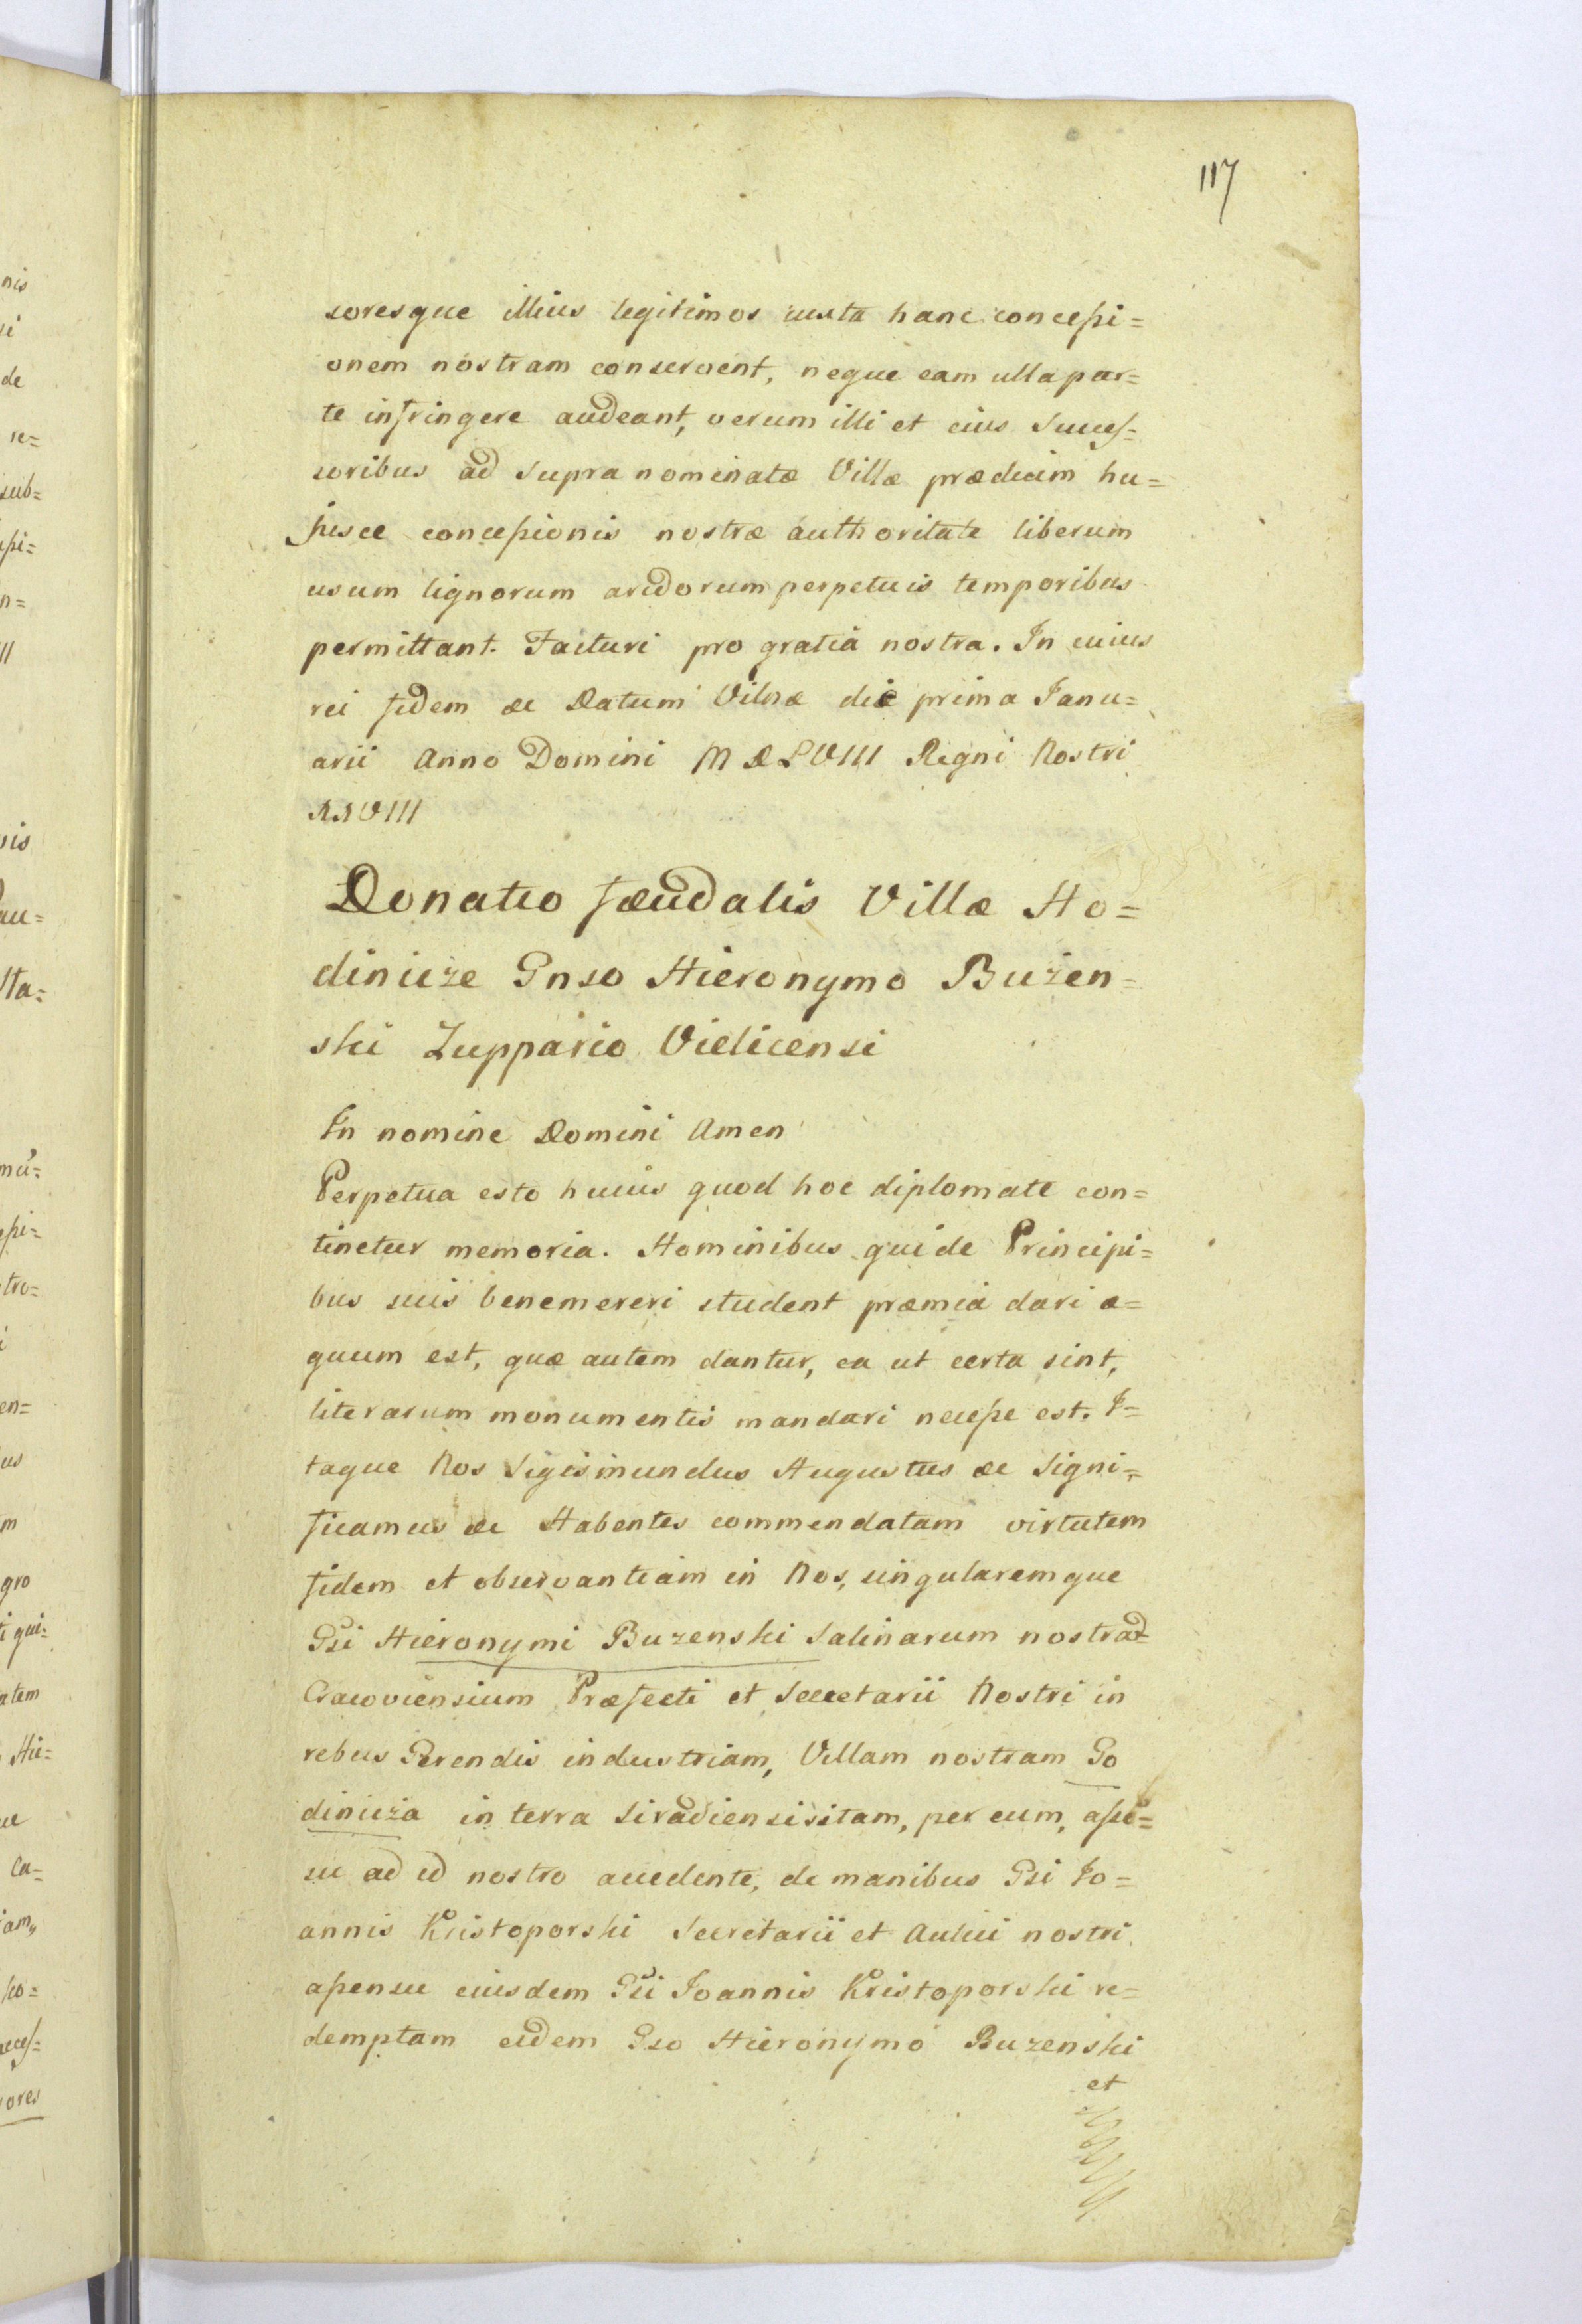 117
soresque illius legitimos iuxta hanc conceßi=
onem nostram conservent, neque eam ulla par=
te infringere audeant, verum illi et eius Succes=
soribus ad supra nominatæ Villæ prædium hu=
jusce conceßionis nostræ authoritate liberum
usum lignorum aridorum perpetuis temporibus
permittant. Facturi pro gratia nostra. In cuius
rei fidem &c Datum Vilnæ die prima Janu=
arii Anno Domini MDLVIII Regni Nostri
XXVIII
Donatio fæudalis Villæ Ho=
dinicze Gnso Hieronymo Bużen=
ski Zuppario Vielicensi
In nomine Domini Amen
Perpetua esto huius quod hoc diplomate con=
tinetur memoria. Hominibus qui de Principi=
bus suis benemereri student præmia dari æ=
quum est, quæ autem dantur, ea ut certa sint,
literarum monumentis mandari neceße est. I=
taque Nos Sigismundus Augustus &c Signi=
ficamus &c Habentes commendatam virtutem
fidem et observantiam in Nos, singularemque
Gsi Hieronymi Buzenski Salinarum nostrar
Cracoviensium Præfecti et Secretarii Nostri in
rebus Gerendis industriam, Villam nostram Go
dinicza in terra Siradiensi sitam, per eum, aßen=
su ad id nostro accedente, de manibus Gsi Jo=
annis Kristoporski Secretarii et Aulici nostri
aßensu eiusdem Gsi Joannis Kristoporski re=
demptam eidem Gso Hieronymo Buzenski
et
nis
si
de
re=
sub=
n=
vis
au=
sta=
en=
us
m
gro
Hie=
ca=
ores